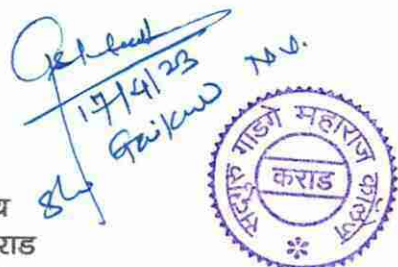 17/4/23
Gaikwad N.V.
सद्गुरु गाडगे महाराज कॉलेज
कराड
य
राड